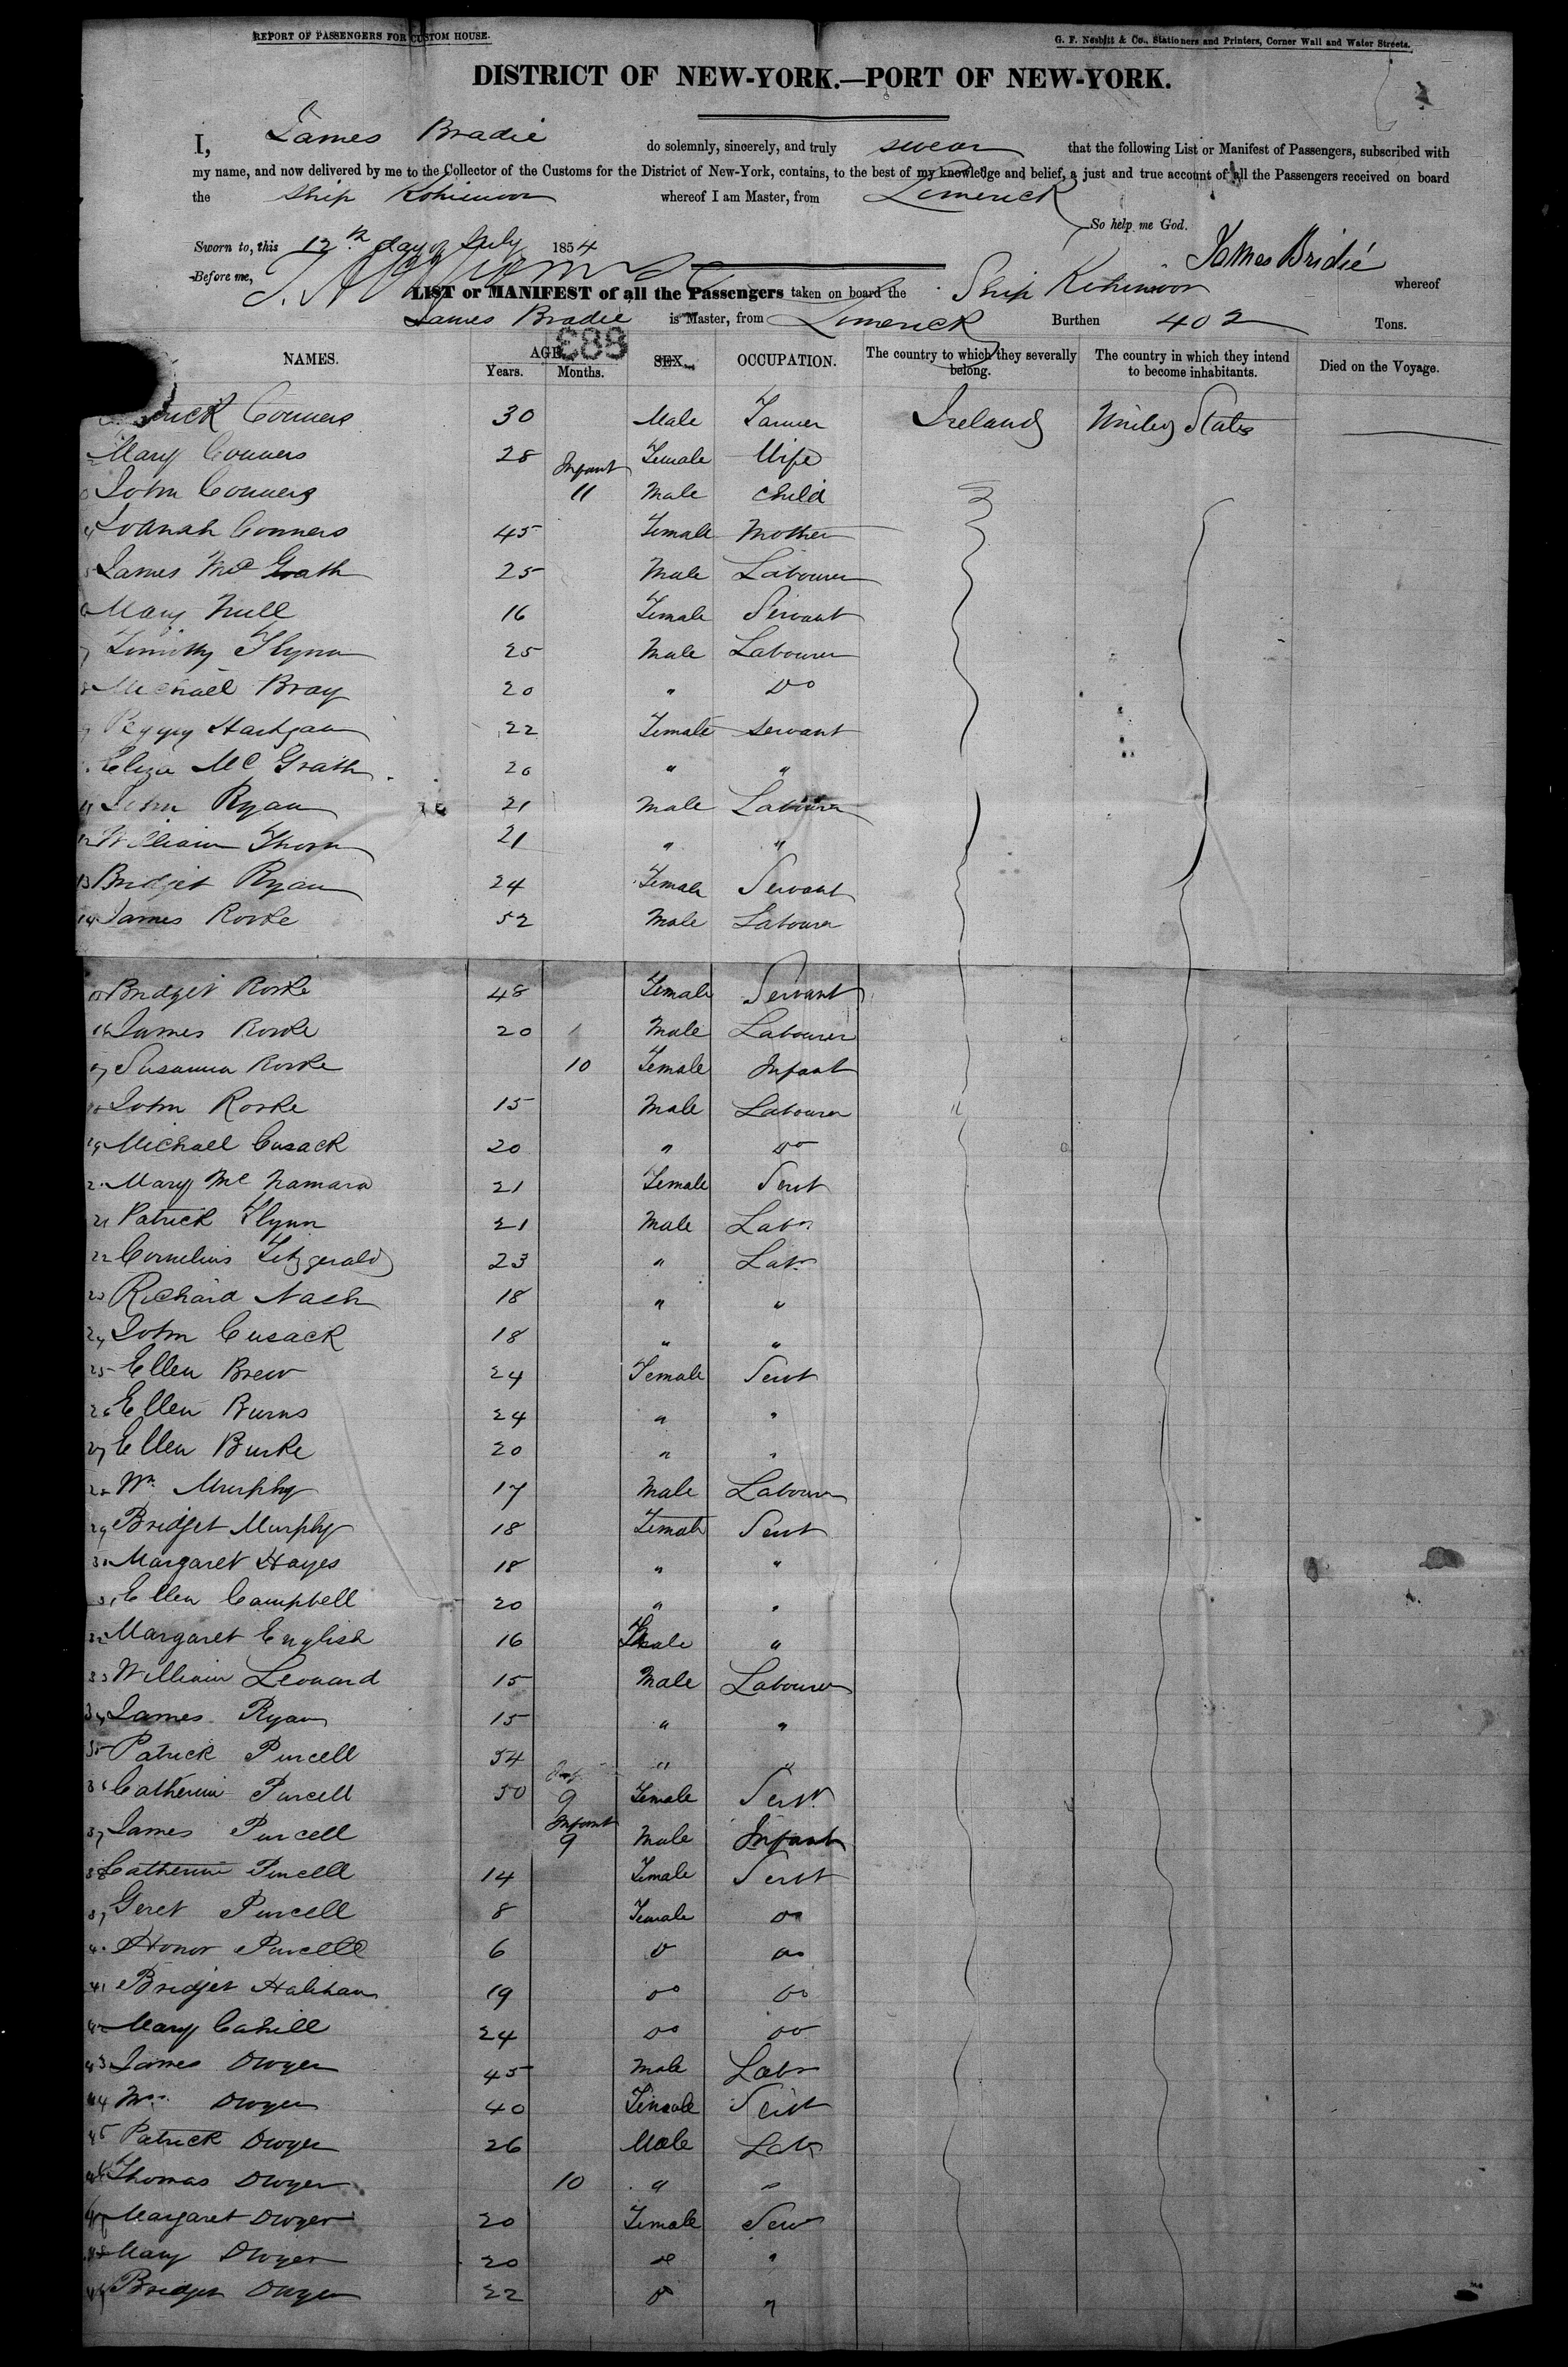 REPORT OF PASSENGERS FOR CUSTOM HOUSE.
G. F. Nesbitt & Co., Stationers and Printers, Corner Wall and Water Streets.
DISTRICT OF NEW-YORK.—PORT OF NEW-YORK.
I, James Bradie do solemnly, sincerely, and truly swear that the following List or Manifest of Passengers, subscribed with
my name, and now delivered by me to the Collector of the Customs for the District of New-York, contains, to the best of my knowledge and belief, a just and true account of all the Passengers received on board
the Ship Kohinoor whereof I am Master, from Limerick
So help me God.
Sworn to, this 12th day of July 1854 James Bridie
Before me,
LIST or MANIFEST of all the Passengers taken on board the Ship Kohinoor whereof
James Bradie is Master, from Limerick Burthen 402 Tons.
883
NAMES. AGE. Years. Months. SEX. OCCUPATION. The country to which they severally belong. The country in which they intend to become inhabitants. Died on the Voyage.
Conners 30 Male Farmer Ireland United States
Mary Conners 28 Female Wife
John Conners Infant 11 Male Child
4 Joanah Conners 45 Female Mother
5 James McGrath 25 Male Labourer
6 Mary 16 Female Servant
7 Timothy Flynn 25 Male Labourer
8 Michael Bray 20 " Do
9 Peggy 22 Female Servant
Eliza McGrath 20 " "
11 John Ryan 21 Male Labourer
12 William 21 " "
13 Bridget Ryan 24 Female Servant
14 James Rorke 52 Male Labourer
15 Bridget Rorke 48 Female Servant
16 James Rorke 20 Male Labourer
17 Susanna Rorke 10 Female Infant
18 John Rorke 15 Male Labourer
19 Michael Cusack 20 " Do
20 Mary McNamara 21 Female Servt
21 Patrick Flynn 21 Male Labr
22 Cornelius Fitzgerald 23 " Labr
23 Richard Nash 18 " "
24 John Cusack 18 " "
25 Ellen Brew 24 Female Servt
26 Ellen Burns 24 " "
27 Ellen Burke 20 " "
28 Wm. Murphy 17 Male Labourer
29 Bridget Murphy 18 Female Servt
30 Margaret Hayes 18 " "
31 Ellen Campbell 20 " "
32 Margaret English 16 Female "
33 William Leonard 15 Male Labourer
34 James Ryan 15 " "
35 Patrick Purcell 54 " "
36 Catherine Purcell 50 9 Female Servt
37 James Purcell Infant 9 Male Infant
38 Catherine Purcell 14 Female Servt
39 Purcell 8 Female Do
40 Honor Purcell 6 Do Do
41 Bridget 19 Do Do
42 Mary Cahill 24 Do Do
43 James Dwyer 45 Male Labr
44 Mrs. Dwyer 40 Female Servt
45 Patrick Dwyer 26 Male Labr
46 Thomas Dwyer 10 " "
47 Margaret Dwyer 20 Female Servt
48 Mary Dwyer 20 Do "
49 Bridget Dwyer 22 Do "